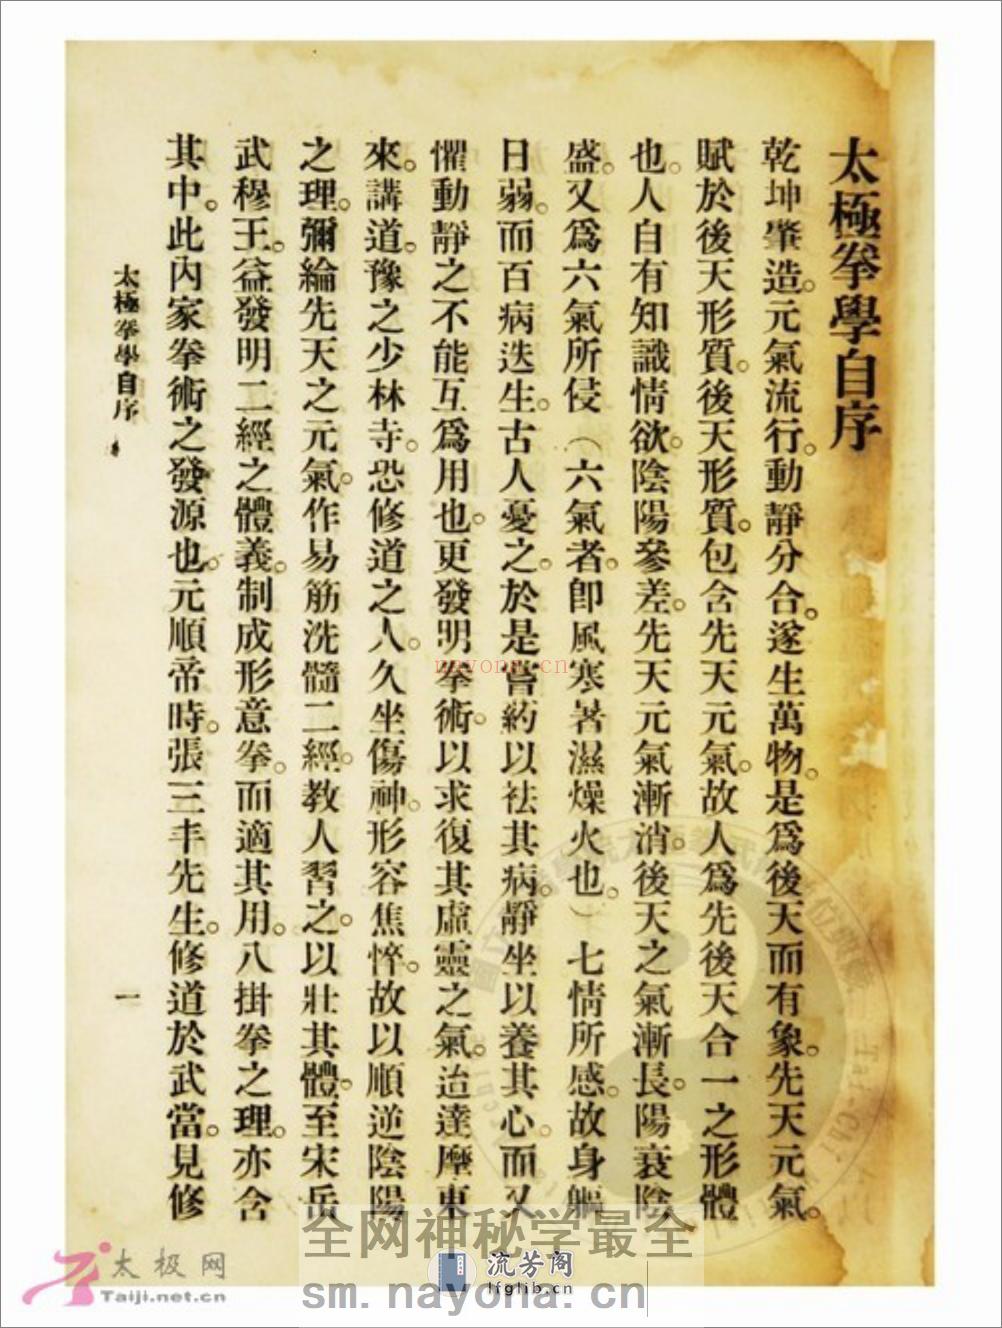 太極拳學自序
乾坤肇造。元氣流行。動靜分合。遂生萬物。是爲後天而有象。先天元氣。
賦於後天形質。後天形質。包含先天元氣。故人爲先後天合一之形體
也。人自有知識情欲。陰陽參差。先天元氣漸消。後天之氣漸長。陽衰陰
盛。又爲六氣所侵（六氣者。卽風寒暑濕燥火也。）七情所感。故身軀
日弱。而百病迭生。古人憂之。於是嘗葯以祛其病。靜坐以養其心。而又
懼動靜之不能互爲用也。更發明拳術。以求復其虛靈之氣。迨達摩東
來。講道。豫之少林寺。恐修道之人。久坐傷神。形容焦悴。故以順逆陰陽
之理。彌綸先天之元氣。作易筋洗髓二經。教人習之。以壯其體。至宋岳
武穆王。益發明二經之體義。制成形意拳。而適其用。八掛拳之理。亦含
其中。此內家拳術之發源也。元順帝時。張三丰先生。修道於武當。見修
太極拳學自序
一
nayona.cn
全网神秘学最全
sm.nayona.cn
流芳阁
lfglib.cn
太极网
Taiji.net.cn